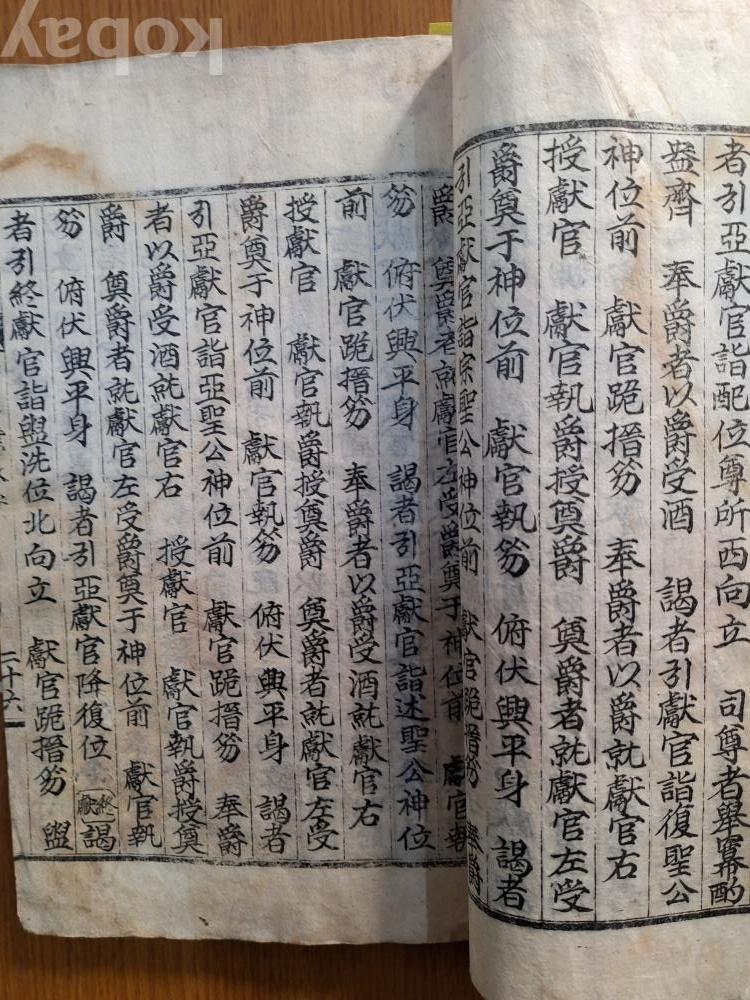 kobay
者引亞獻官詣配位尊所西向立 司尊者舉冪酌
盎齊 奉爵者以爵受酒 謁者引獻官詣復聖公
神位前 獻官跪搢笏 奉爵者以爵就獻官右
授獻官 獻官執爵授奠爵 奠爵者就獻官左受
爵奠于神位前 獻官執笏 俯伏興平身 謁者
引亞獻官詣宗聖公神位前 獻官跪搢笏 奉爵
爵 奠爵者就獻官左受爵奠于神位前 獻官執
笏 俯伏興平身 謁者引亞獻官詣述聖公神位
前 獻官跪搢笏 奉爵者以爵受酒就獻官右
授獻官 獻官執爵授奠爵 奠爵者就獻官左受
爵奠于神位前 獻官執笏 俯伏興平身 謁者
引亞獻官詣亞聖公神位前 獻官跪搢笏 奉爵
者以爵受酒就獻官右 授獻官 獻官執爵授奠
爵 奠爵者就獻官左受爵奠于神位前 獻官執
笏 俯伏興平身 謁者引亞獻官降復位 終獻 謁
者引終獻官詣盥洗位北向立 獻官跪搢笏 盥
二十六